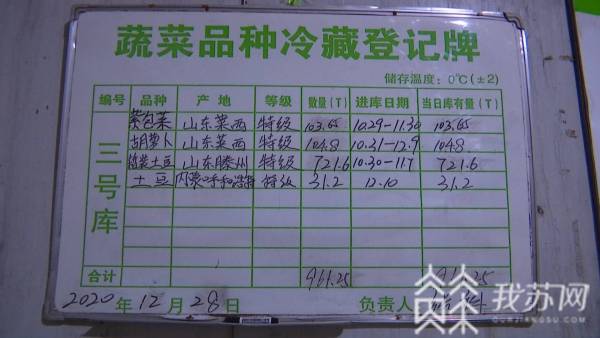 蔬菜品种冷藏登记牌
储存温度：0℃(±2)
编号 品种 产地 等级 数量(T) 进库日期 当日库有量(T)
三号库
紫包菜 山东莱西 特级 103.65 10.29-11.30 103.65
胡萝卜 山东莱西 特级 104.8 10.31-12.9 104.8
土豆 山东滕州 特级 721.6 10.30-11.7 721.6
土豆 内蒙呼和浩特 特级 31.2 12.10 31.2
合计 961.25 961.25
2020年12月28日 负责人
我苏网
OURJIANGSU.COM